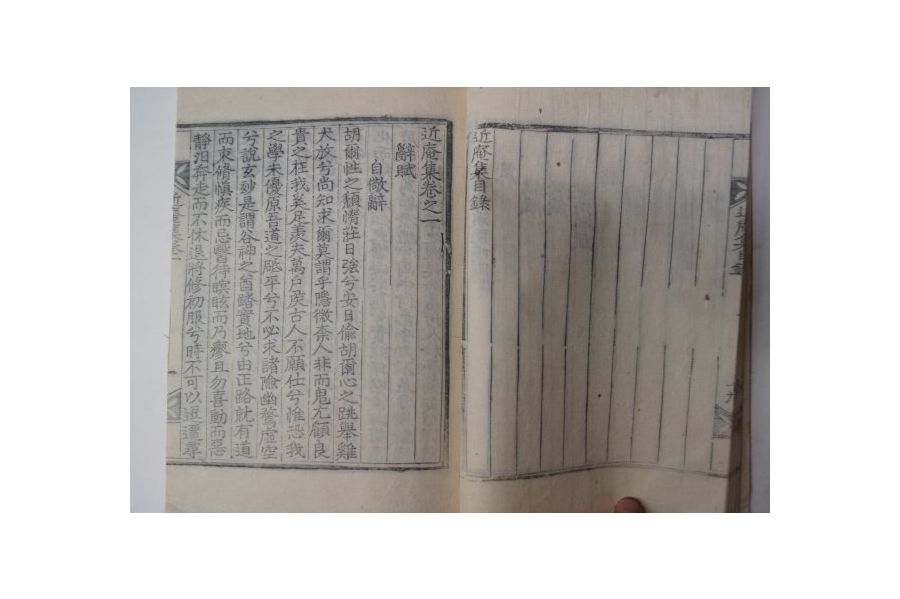 近庵集目錄
近庵集卷之一
辭賦
自儆辭
胡爾性之頹惰莊日強兮安日偸胡爾心之跳舉雞
犬放兮尚知求爾莫謂乎隱微柰人非而鬼尤顧良
貴之在我奚足羡夫萬戶侯古人不願仕兮惟恐我
之學未優原吾道之砥平兮不必求諸險幽騖虛空
兮說玄玅是謂谷神之酋踏實地兮由正路就有道
而求脩愼疾而忌毉待瞑眩而乃瘳且勿喜動而惡
靜汨奔走而不休退將修初服兮時不可以逗遭尋